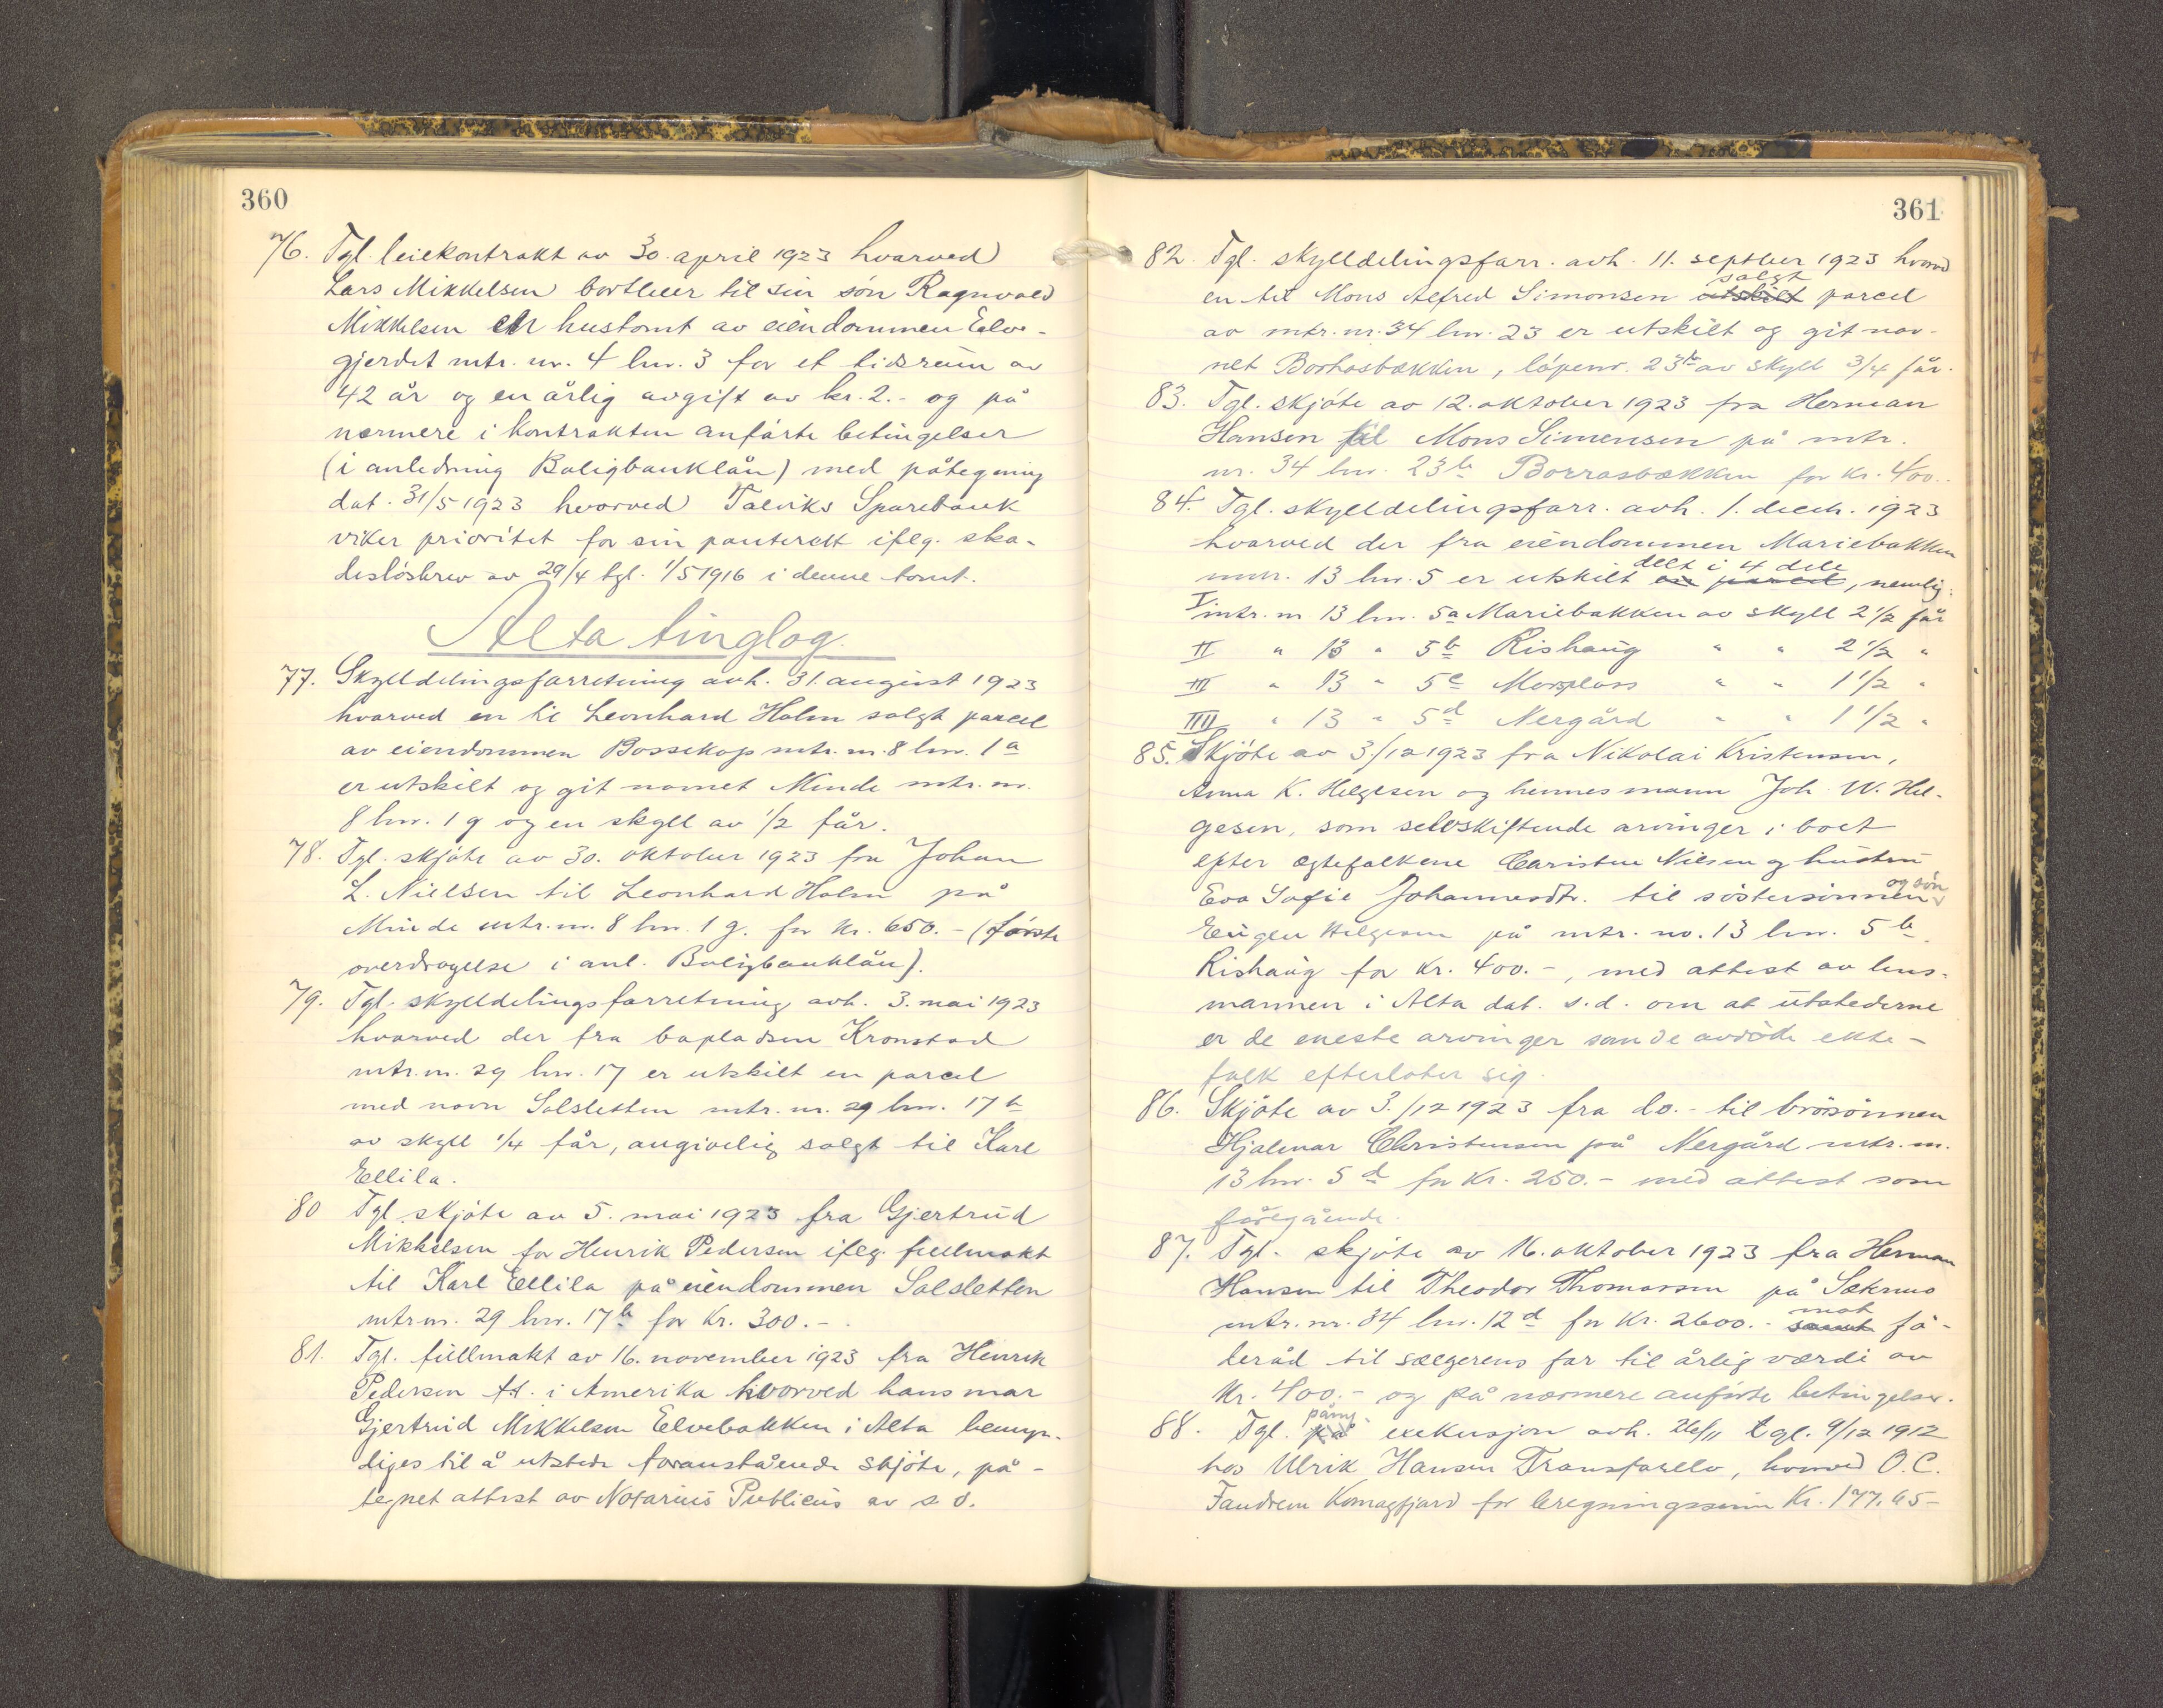 360
76. Tgl. leiekontrakt av 30. april 1923 hvorved
Lars Mikkelsen bortleier til sin søn Ragnvald
Mikkelsen en hustomt av eiendommen Elve-
gjerdet mtr. nr. 4 lnr. 3 for et tidsrum av
42 år og en årlig avgift av kr. 2.- og på
nærmere i kontrakten anførte betingelser
(i anledning Boligbanklån) med påtegning
dat. 31/5 1923 hvorved Talviks Sparebank
viker prioritet for sin panterett iflg. ska-
desløsbrev av 29/4 tgl. 1/5 1916 i denne tomt.
Alta tinglag.
77. Skylddelingsforretning avh. 31. august 1923
hvorved en til Leonhard Holm solgt parcel
av eiendommen Bossekop mtr. nr. 8 lnr. 1a
er utskilt og git navnet Minde mtr. nr.
8 lnr. 1g og en skyld av 1/2 får.
78. Tgl. skjøte av 30. oktober 1923 fra Johan
L. Nielsen til Leonhard Holm på
Minde mtr. nr. 8 lnr. 1 g. for kr. 650.- (første
overdragelse i anl. Boligbanklån).
79. Tgl. skylddelingsforretning avh. 3. mai 1923
hvorved der fra bopladsen Kronstad
mtr. nr. 29 lnr. 17 er utskilt en parcel
med navn Solsletten mtr. nr. 29 lnr. 17 b
av skyld 1/4 får, angivelig solgt til Karl
Ellila.
80 Tgl. skjøte av 5. mai 1923 fra Gjertrud
Mikkelsen for Henrik Pedersen iflg. fullmakt
til Karl Ellila på eiendommen Solsletten
mtr. nr. 29 lnr. 17 b for kr. 300.-
81. Tgl. fullmakt av 16. november 1923 fra Henrik
Pedersen tt. i Amerika hvorved hans mor
Gjertrud Mikkelsen Elvebakken i Alta bemyn-
diges til å utstede foranstående skjøte, på-
tegnet attest av Notarius Publicus av s d.
361
82. Tgl. skylddelingsforr. avh. 11. septber 1923 hvorved
solgt
en til Mons Alfred Simonsen utskilt parcel
av mtr. nr. 34 lnr. 23 er utskilt og git nav-
net Borrasbækken, løpenr. 23 b av skyld 3/4 får.
83. Tgl. skjøte av 12. oktober 1923 fra Herman
Hansen til Mons Simensen på mtr.
nr. 34 lnr. 23 b Borrasbækken for kr. 400..
84. Tgl. skylddelingsforr. avh. 1. decbr. 1923
hvorved der fra eiendommen Mariebakken
delt i 4 dele
mnr. 13 lnr. 5 er utskilt en parcel, nemlig:
I mtr. nr 13 lnr. 5a Mariebakken av skyld 2 1/2 får
II " 13 " 5 b Rishaug " " 2 1/2 "
III " 13 " 5 c Morplass " " 1 1/2 "
IIII " 13 " 5 d Nergård " " 1 1/2 "
85. Skjøte av 3/12 1923 fra Nikolai Kristensen,
Anna K. Helgesen og hennes mann Joh. W. Hel-
gesen, som selvskiftende arvinger i boet
efter egtefolkene Christen Nilsen og hustru
og søn
Eva Sofie Johannesdtr. til søstersønnen
Eugen Helgesen på mtr. no. 13 lnr. 5 b
Rishaug for kr. 400.-, med attest av lens-
mannen i Alta dat. s.d. om at utstederne
er de eneste arvinger som de avdøde ekte-
folk efterlater sig.
86. Skjøte av 3./12 1923 fra do.- til brorsønnen
Hjalmar Christensen på Nergård mtr. nr.
13 lnr. 5 d for kr. 250.- med attest som
foregående.
87. Tgl. skjøte av 16. oktober 1923 fra Herman
Hansen til Theodor Thomassen på Sækmo
mot
mtr. nr. 34 lnr. 12 d for kr. 2600.- samt fø-
deråd til sælgerens far til årlig værdi av
kr. 400.- og på nærmere anførte betingelser.
påny
88. Tgl. på exekusjon avh. 26/11 tgl. 9/12 1912
hos Ulrik Hansen Transfarelv, hvorved O.C.
Fandrem Komagfjord for beregningssum kr. 177,65-